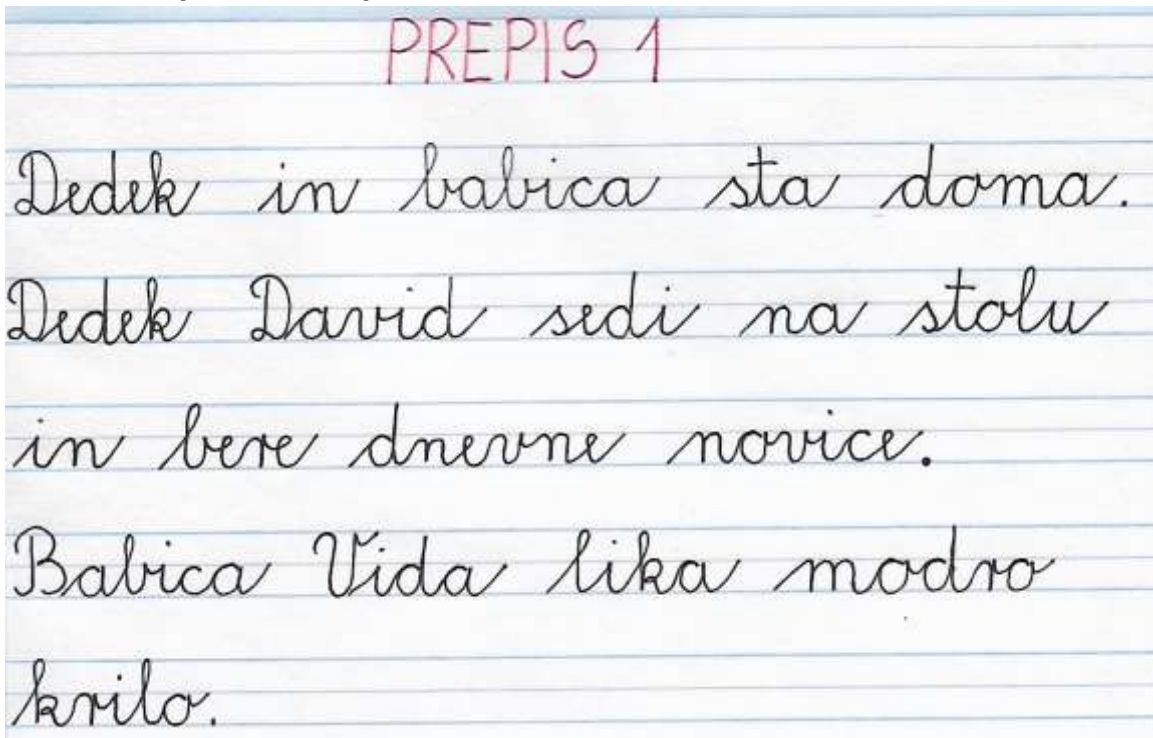 PREPIS 1
Dedek in babica sta doma.
Dedek David sedi na stolu
in bere dnevne novice.
Babica Vida lika modro
krilo.